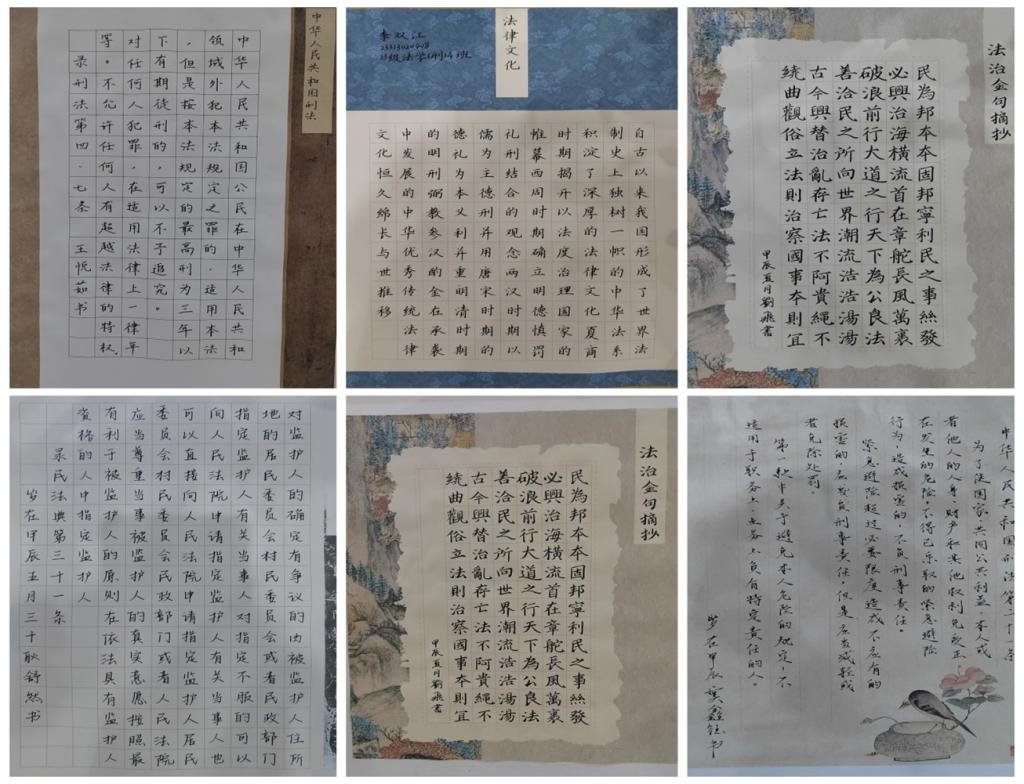 中华人民共和国刑法
中华人民共和国公民在中华人民共和
领域外犯本法规定之罪的．适用本法
，但是按本法规定的最高刑为三年以
下有期徒刑的，可以不予追究。
对任何人犯罪，在适用法律上一律平
等。不允许任何人有超越法律的特权．
录刑法第四．七条 王悦茹书
法律文化
李双江
23级法学(刑)4班
自古以来我国形成了世界法
制史上独树一帜的中华法系
积淀了深厚的法律文化夏商
时期揭开以法度治理国家的
帷幕西周时期确立明德慎罚
礼刑结合的观念两汉时期以
儒为主德刑并用唐宋时期的
德礼为本义利并重明清时期
的明刑弼教参汉酌金在承袭
中发展的中华优秀传统法律
文化恒久绵长与世推移
法治金句摘抄
民為邦本本固邦寧利民之事絲發
必興治海橫流首在章舵長風萬裏
破浪前行大道之行天下為公良法
善治民之所向世界潮流浩浩湯湯
古今興替治亂存亡法不阿貴繩不
繞曲觀俗立法則治察國事本則宜
甲辰夏月劉飛書
对监护人的确定有争议的由被监护人住所
地的居民委员会村民委员会或者民政部门
指定监护人有关当事人对指定不服的可以
向人民法院申请指定监护人有关当事人也
可以直接向人民法院申请指定监护人居民
委员会村民委员会民政部门或者人民法院
应当尊重当事被监护人的真实意愿按照最
有利于被监护人的原则在依法具有监护人
资格的人中指定监护人
录民法典第三十一条
岁在甲辰五月三十耿舒然书
法治金句摘抄
民為邦本本固邦寧利民之事絲發
必興治海橫流首在章舵長風萬裏
破浪前行大道之行天下為公良法
善治民之所向世界潮流浩浩湯湯
古今興替治亂存亡法不阿貴繩不
繞曲觀俗立法則治察國事本則宜
甲辰夏月劉飛書
中华人民共和国刑法第二十一条
为了使国家、共同公共利益、本人或
者他人的人身、财产和其他权利免受正
在发生的危险，不得已采取的紧急避险
行为，造成损害的，不负刑事责任。
紧急避险超过必要限度造成不应有的
损害的，应当负刑事责任，但是应当减轻或
者免除处罚。
第一款中关于避免本人危险的规定，不
适用于职务上、业务上负有特定责任的人。
岁在甲辰 樊鑫钰书